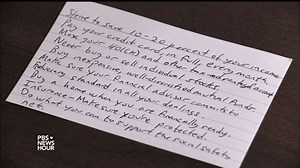 Strive to save 10-20 percent of your income.
Pay your credit card in full every month
Max your 401(k) and other tax-advantaged accounts
Never buy or sell individual stocks.
Buy inexpensive, well-diversified mutual funds.
Make your financial advisor commit to
fiduciary standard in all your dealings.
Buy a home when you are financially ready.
Insurance-Make sure you're protected.
Do what you can to support the social safety
net.
PBS
NEWS
HOUR